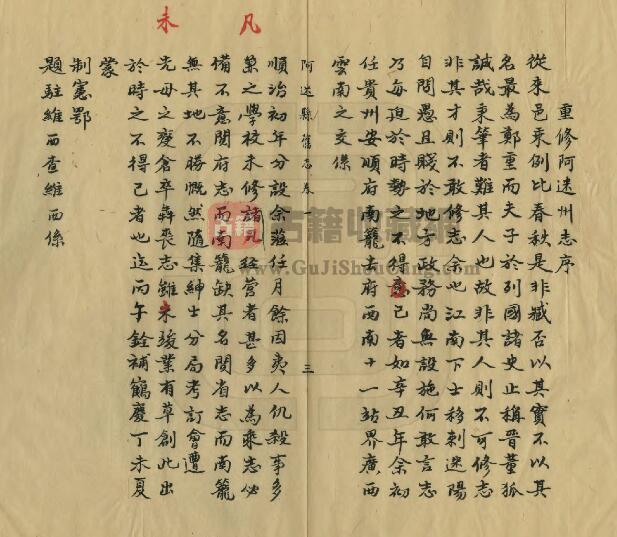 重修阿迷州志序
從來邑乘例比春秋是非臧否以其實不以其
名最為鄭重而夫子於列國諸史止稱晉董狐
誠哉秉筆者難其人也故非其人則不可修志
非其才則不敢修志余也江南下士移刺迷陽
自問愚且賤於地方政務尚無設施何敢言志
乃每迫於時勢之不得意已者如辛丑年余初
任貴州安順府南籠去府西南十一站界廣西
雲南之交係
阿迷縣舊志卷
三
順治初年分設余蒞任月餘因夷人仇殺事多
棄之學校未修諸凡經營者甚多以為乘志必
備不意閱府志而南籠缺其名閱省志而南籠
無其地不勝慨然隨集紳士分局考訂會遭
先母之變倉卒奔喪志雖未竣業有草創此出
於時之不得已者也迄丙午銓補鶴慶丁未夏
蒙
制憲鄂
題駐維西查維西係
凡
未
古籍收藏網
www.GuJiShouCang.com